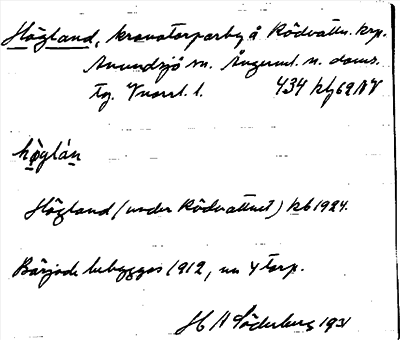 Högland, kronotorparby å Rödvattn. krp.
Anundsjö sn. Ångerml. n. doms.
tg. Vnorrl. l. 434 kbl 62 NV
hö̀glán
Högland (under Rödvattnet) kb 1924.
Började bebyggas 1912, nu 4 torp.
H A Söderberg 1931